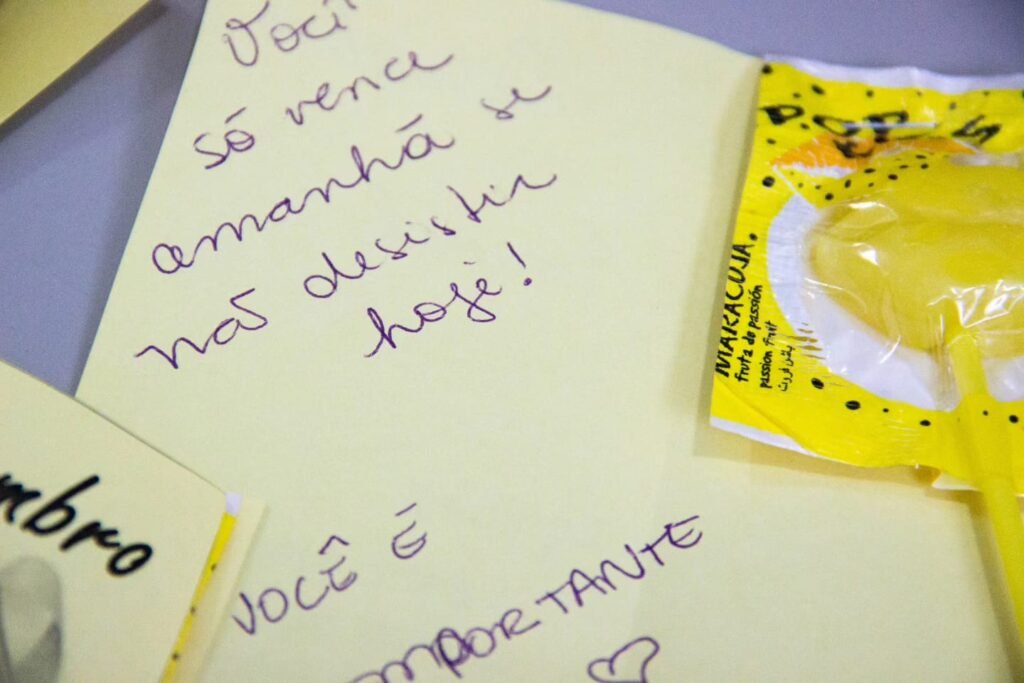 Você
só vence
amanhã se
não desistir
hoje!
VOCÊ É
IMPORTANTE
mbro
MARACUJA.
fruta de passión
passion fruit